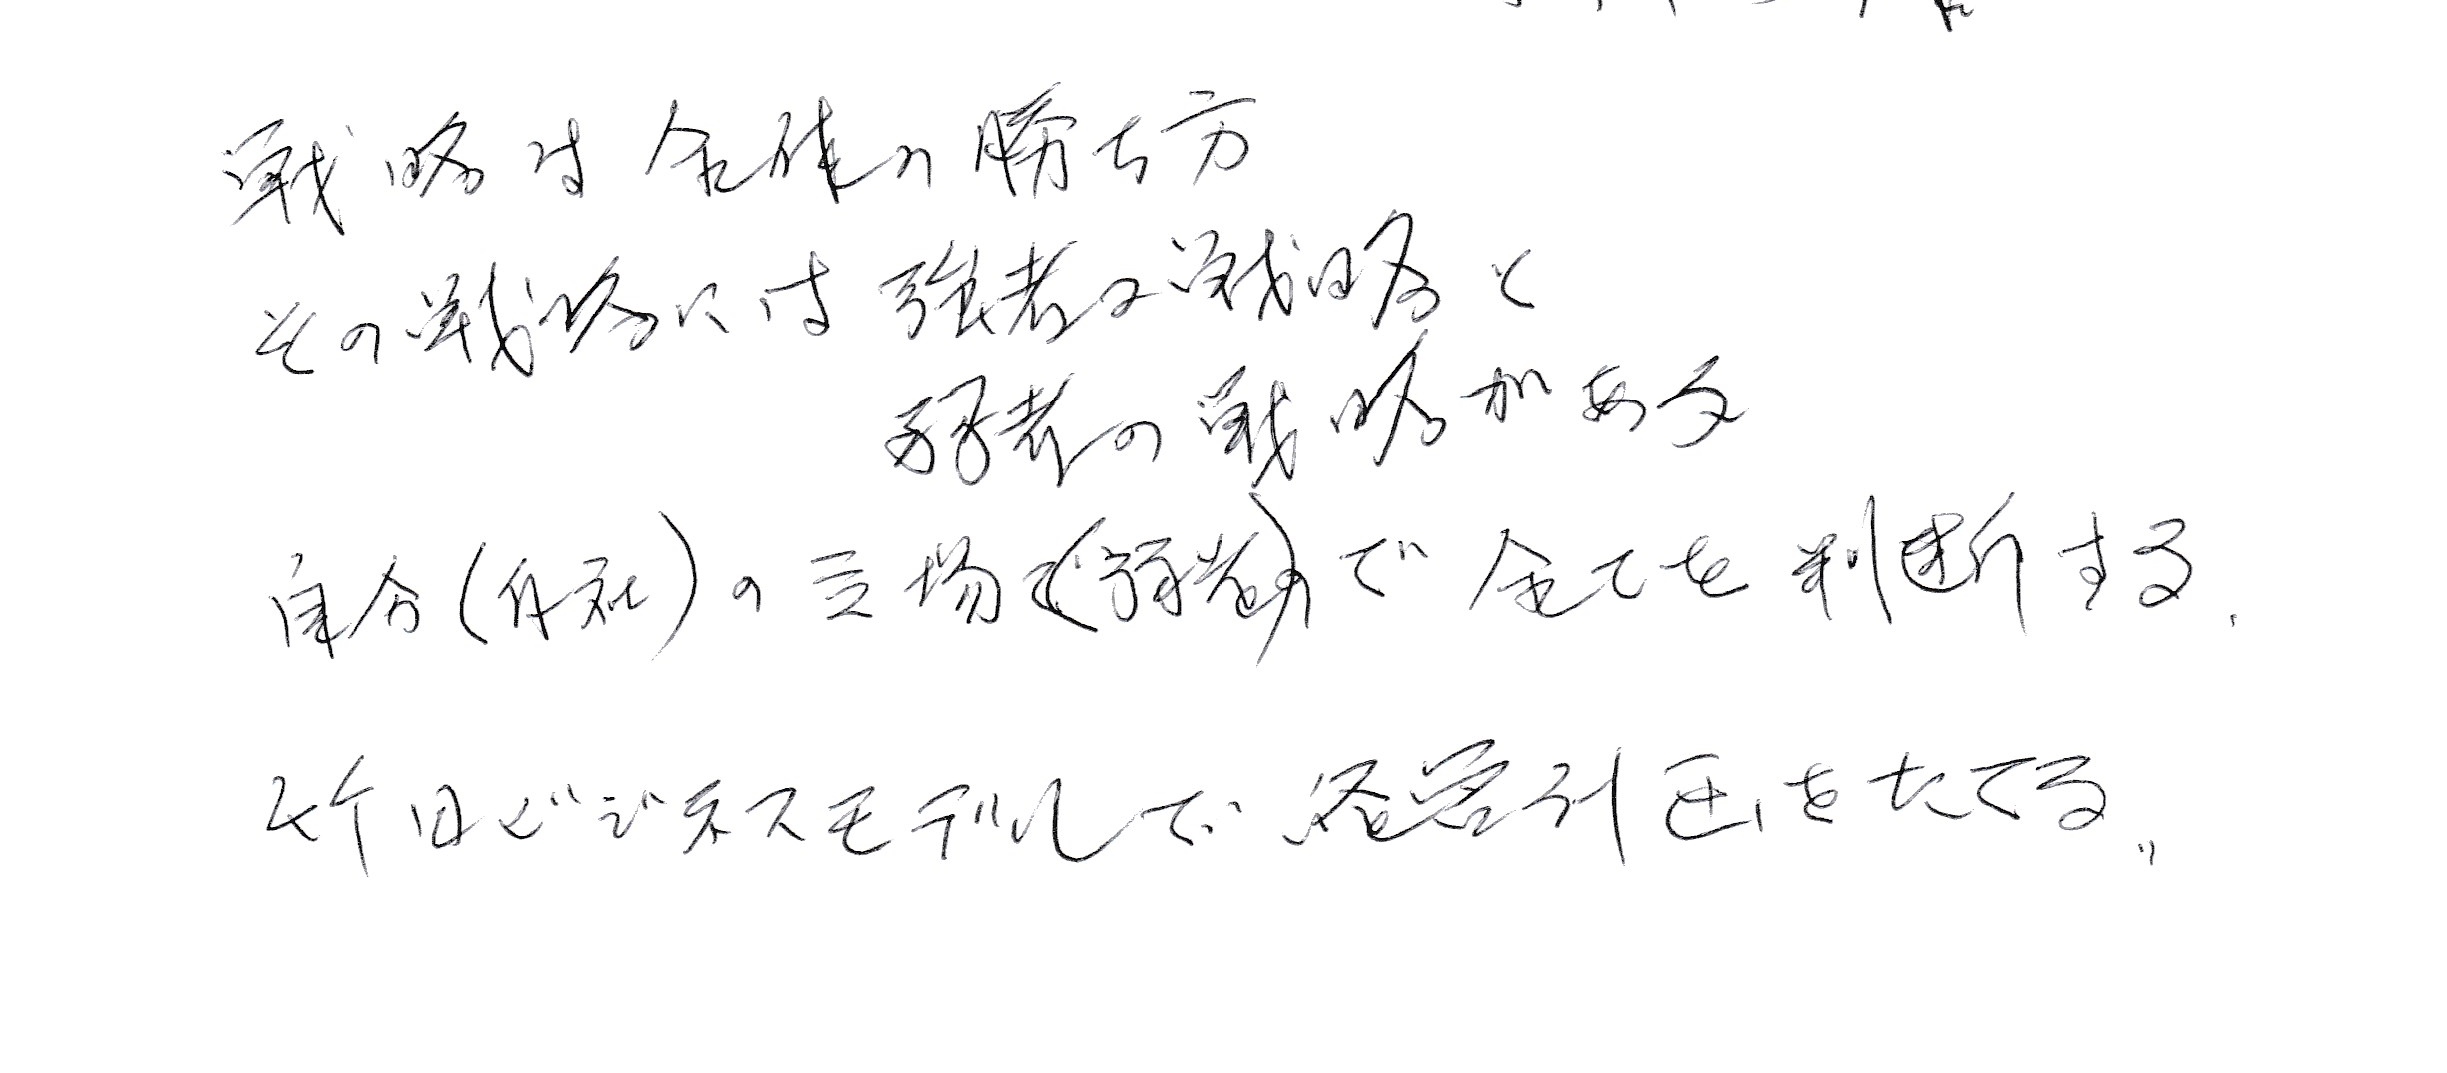 戦略は全体の勝ち方
その戦略には強者の戦略と
弱者の戦略がある
自分(自社)の立場で(弱者)ので全てを判断する.
昨日ビジネスモデルで経営計画をたてる。